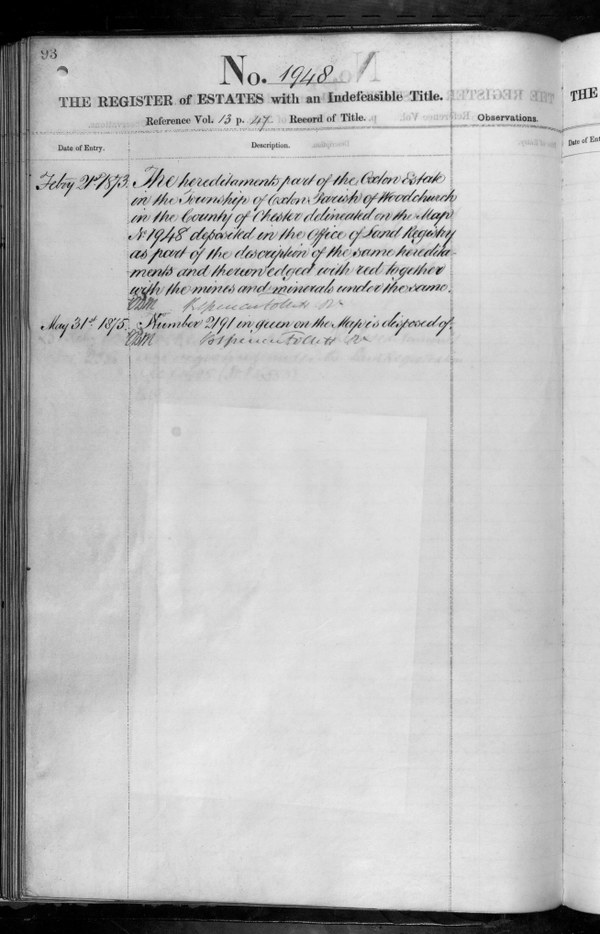 93
No. 1948
THE REGISTER of ESTATES with an Indefeasible Title.
THE
Reference Vol. 13 p. 47 Record of Title.
Observations.
Date of Entry.
Description.
Date of Ent
Febry 21st 1873. The hereditaments part of the Oxton Estate
in the Township of Oxton Parish of Woodchurch
in the County of Chester delineated on the Map
No 1948 deposited in the Office of Land Registry
as part of the description of the same heredita-
ments and thereon edged with red together
with the mines and minerals under the same.
May 31st 1875. Number 2191 in green on the Map is disposed of.